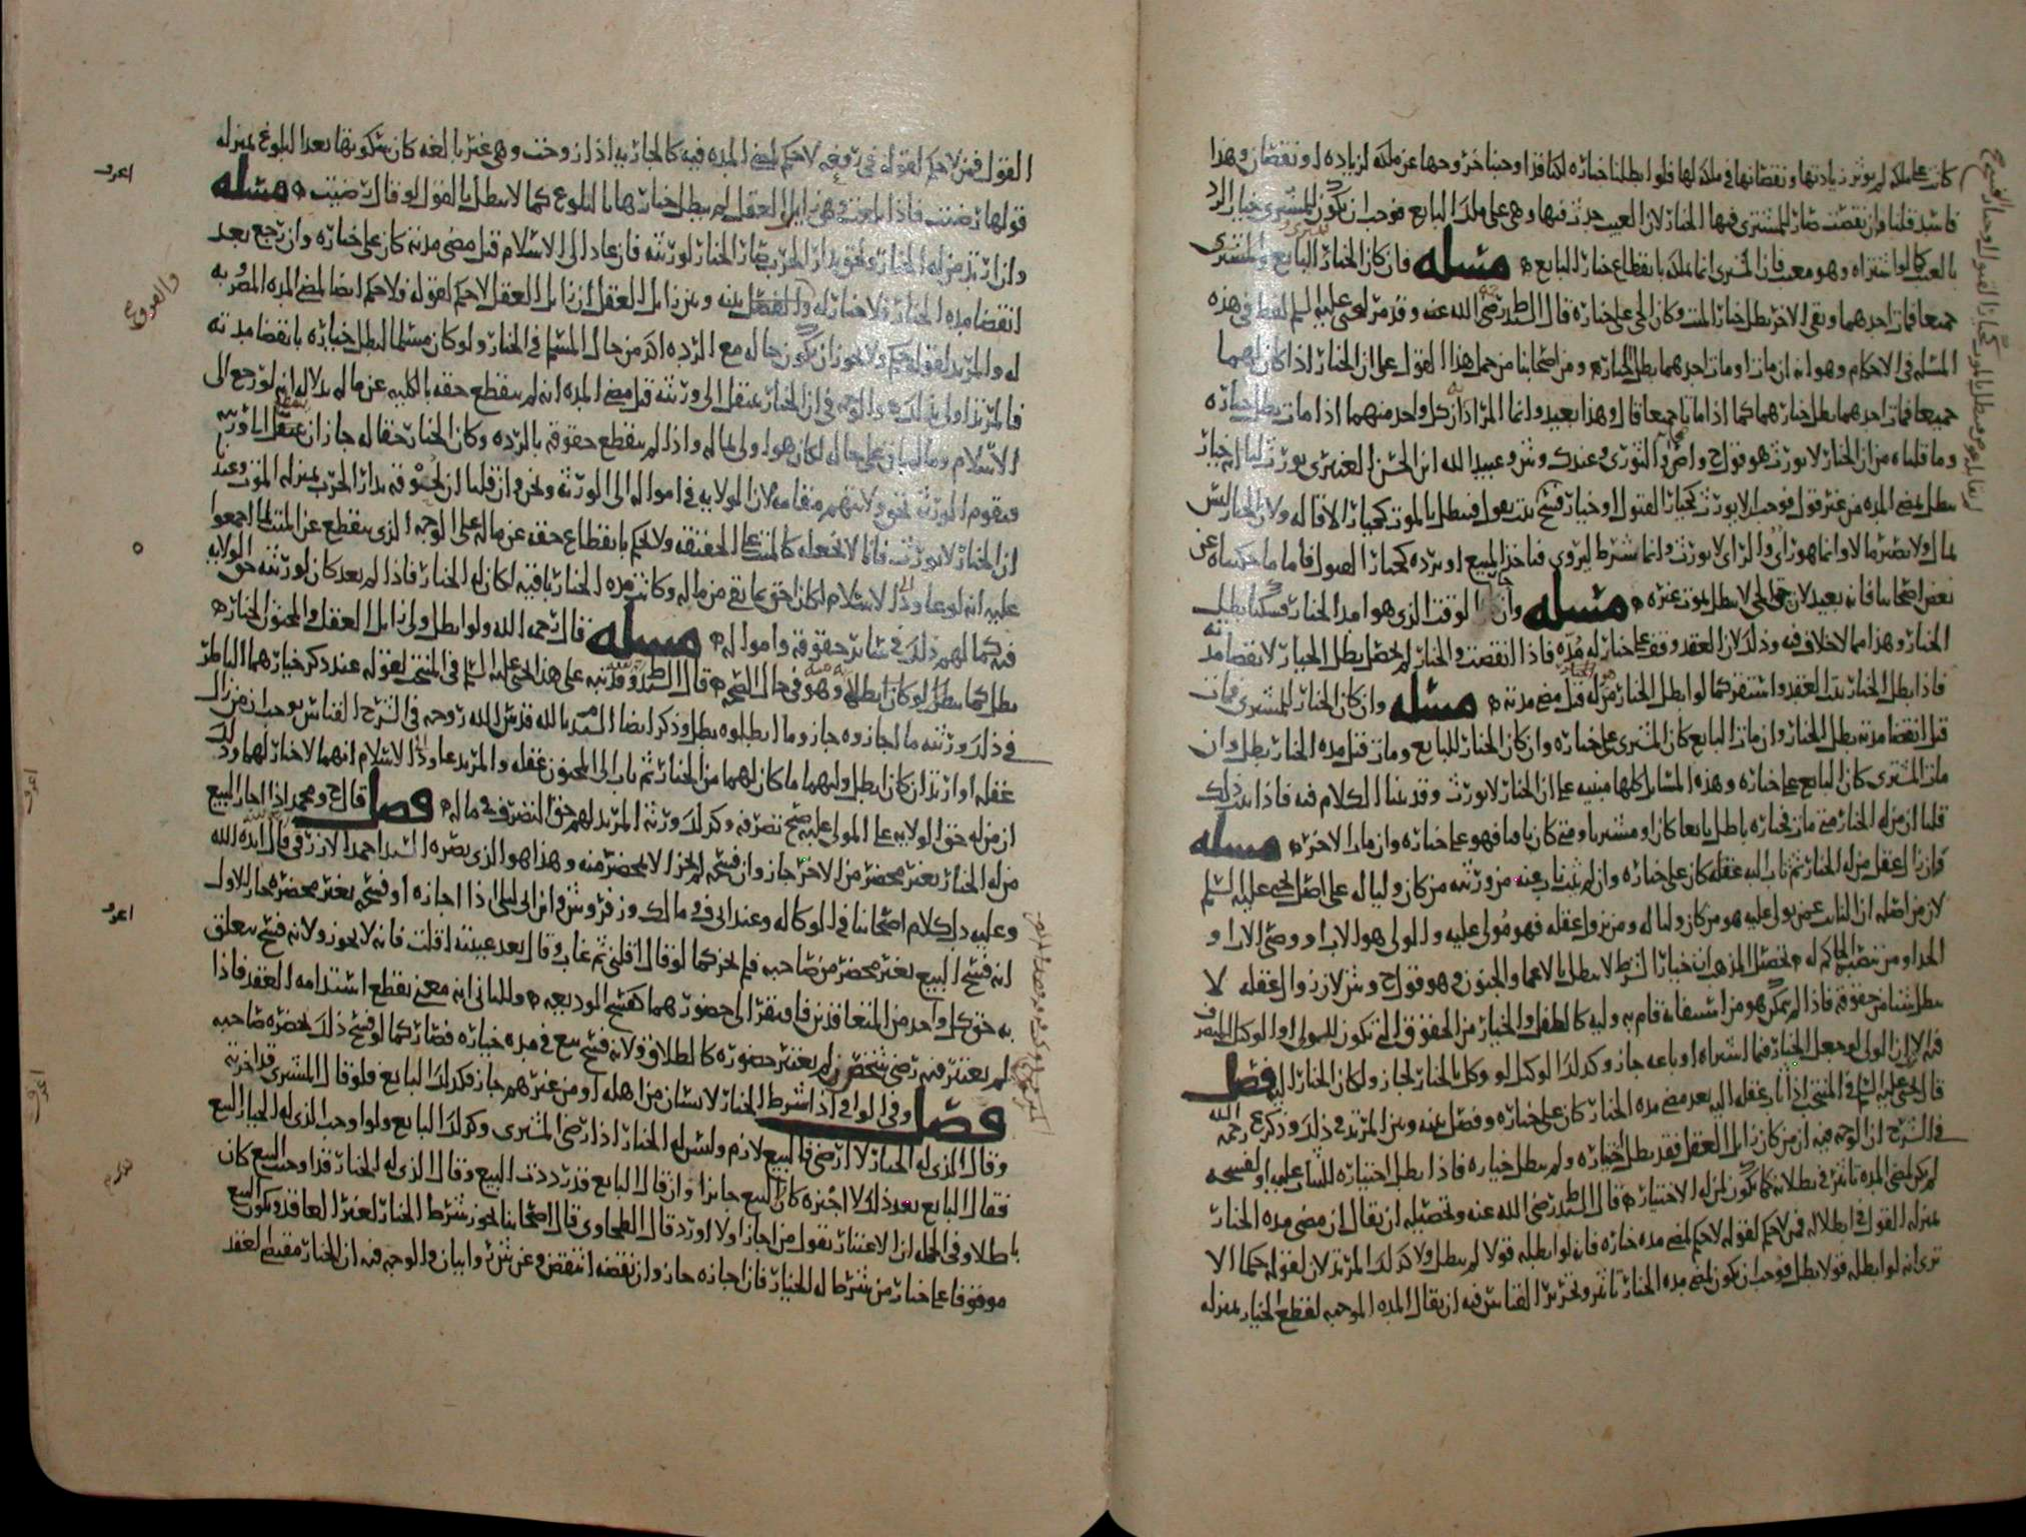 كان على ملكه لم يوثر زيادتها ونقصانها في ملكه لها فلو ابطلنا خياره لكنا قد اوجبنا خروجها عن ملكه لزياده او نقصان وهذا
فاسد قلنا فان نقصت صار للمشتري فيها الخيار لان العيب حدث فيها وهي على ملك البايع فوجب ان يكون للمشتري خيار الرد
بالعيب كما لو اشتراه وهو معيب فان المشتري انما ملكه بانقطاع خيار البايع مسله فان كان الخيار للبايع والمشتري
جميعا فمات احدهما وبقي الاخر بطل خيار الميت وكان الحي على خياره قال السيد رضي الله عنه وقد مر ليحيى عليه السلم لفظ في هذه
المسله في الاحكام وهو انه ان ماتا او مات احدهما بطل الخيار ومن اصحابنا من حمل هذا القول على ان الخيار اذا كان لهما
جميعا فمات احدهما بطل خيارهما كما اذا ماتا جميعا قال وهذا بعيد وانما المراد ان كل واحد منهما اذا مات بطل خياره
وما قلناه من ان الخيار لا يورث هو قول ح واص والثوري وعند ك وش وعبيد الله ابن الحسن العنبري يورث لنا انه خيار
يبطل بمضي المده من غير قول فوجب الا يورث كخيار القبول او خيار فسخ يثبت بقول فيبطل بالموت كخيار الاقاله ولان الخيار ليس
بمال ولا يصير مالا وانما هو راي والراي لا يورث وانما شرط ليروي فياخذ المبيع او يرده كخيار القبول فاما ما حكيناه عن
بعض اصحابنا فانه بعيد لان حق الحي لا يبطل بموت غيره مسله وان الوقت الذي هو امد الخيار بطل
الخيار وهذا مما لا خلاف فيه وذلك لان العقد وقف على خيار له مده فاذا انقضت والخيار لم يحصل بطل الخيار لانقضا مدته
فاذا بطل الخيار ثبت العقد واستقر كما لو ابطل الخيار من له قبل مضي مدته مسله وان كان الخيار للمشتري فمات
قبل انقضا مدته بطل الخيار وان مات البايع كان المشتري على خياره وان كان الخيار للبايع ومات قبل مده الخيار بطل وان
مات المشتري كان البايع على خياره وهذه المسايل كلها مبنيه على ان الخيار لا يورث وقد بينا الكلام فيه فاذا ثبت ذلك
قلنا ان من له الخيار متى مات فخياره باطل بايعا كان او مشتريا ومتى كان باقيا فهو على خياره وان مات الاخر مسله
فان زال عقل من له الخيار ثم ثاب اليه عقله كان على خياره وان لم يثب ناب عنه من ورثته من كان وليا له على اصل يحيى عليه السلم
لان من اصله ان النايب عمن يولى عليه هو من كان وليا له ومن يزول عقله فهو مولى عليه والولي هو الاب او وصي الاب او
الجد او من ينصبه الحاكم له تحصيل المذهب ان خيار الشرط لا يبطل بالاغما والجنون وهو قول ح وش لان زوال العقل لا
يبطل شيئا من حقوقه فاذا لم يمكن هو من استيفائه قام به وليه كالطفل والخيار من الحقوق التي تكون للمولى او الوكيل التصرف
فيه الا ان الولي لو جعل الخيار فيما اشتراه او باعه جاز وكذلك الوكيل لو وكل بالخيار لجاز ولكان الخيار اليه فصل
قال يحيى عليه السلم في المنتخب اذا ثاب عقله اليه بعد مضي مده الخيار كان على خياره وفصل بينه وبين المرتد في ذلك وذكر ع رحمه الله
في الشرح ان الوجه فيه ان من كان زايل العقل فقد بطل اختياره ولم يبطل خياره فاذا بطل اختياره
لم يكن لمضي المده تاثير في بطلانه كما يكون لمن له الاختيار قال السيد رضي الله عنه وتحصيله ان يقال ان مضي مده الخيار
بمنزله القول في ابطاله فمن لا حكم لقوله لا حكم لمضي مده خياره فانه لو ابطله قولا لم يبطل ولا كذلك المرتد لان لقوله حكما الا
ترى انه لو ابطله قولا بطل فوجب ان يكون لمضي مده الخيار تاثير وتحرير القياس فيه ان يقال المده الموجبه لقطع الخيار بمنزله
القول فمن لا حكم لقوله في رفعه لا حكم لمضي المده فيه كالجاريه اذا زوجت وهي غير بالغه كان سكوتها بعد البلوغ بمنزله
قولها رضيت فاذا بلغت وهي زايله العقل لم يبطل خيارها بالبلوغ كما لا يبطل بالقول لو قالت رضيت مسله
وان ارتد من له الخيار ولحق بدار الحرب صار الخيار لورثته فان عاد الى الاسلام قبل مضي مدته كان على خياره وان رجع بعد
انقضا مده الخيار فلا خيار له والفصل بينه وبين زايل العقل ان زايل العقل لا حكم لقوله فلا حكم ايضا لمضي المده المضروبه
له والمرتد لقوله حكم ولا يجوز ان يكون حاله مع الرده اكد من حال المسلم في الخيار ولو كان مسلما لبطل خياره بانقضا مدته
فالمرتد اولى بذلك والوجه في ان الخيار ينتقل الى ورثته قبل مضي المده انه لم ينقطع حقه بالكليه عن ماله بدلاله انه لو رجع الى
الاسلام وماله باق على حاله لكان هو اولى بماله واذا لم ينقطع حقوقه بالرده وكان الخيار حقا له جاز ان ينتقل الى ورثته
ويقوم الورثه لحق ولايتهم مقامه لان لهم الولايه في امواله الى الورثه ونحن وان قلنا ان لحوقه بدار الحرب بمنزله الموت وعند
ان الخيار لا يورث فانا لا نجعله كالميت على الحقيقه ولا نحكم بانقطاع حقه عن ماله على الوجه الذي ينقطع عن الميت لما اجمعوا
عليه انه لو عاود الاسلام لكان احق بما بقي من ماله وكانت مده الخيار باقيه لكان له الخيار فاذا لم يعد كان لورثته حق الولايه
فيه كما لهم ذلك في ساير حقوقه وامواله مسله قال رحمه الله ولو ابطل ولي زايل العقل والمجنون الخيار
بطل كما يبطل لو كان ابطله وهو في حال الصحه قال السيد وقد نبه على هذا يحيى عليه السلم في المنتخب لقوله عند ذكر خيارهما الباطل
في ذلك ورثته ما اجازوه جاز وما ابطلوه بطل وذكر ايضا المويد بالله قدس الله روحه في الشرح القياس يوجب ان من زال
عقله او ارتد ان كان ابطل وليهما ما كان لهما من الخيار ثم ثاب الى المجنون عقله والمرتد عاود الاسلام انهما لا خيار لهما وذلك
ان من له حق الولايه على المولى عليه صح تصرفه وكذلك ورثه المرتد لهم حق التصرف في ماله فصل قال ح ومحمد اذا اجاز البيع
من له الخيار بغير محضر من الاخر جاز وان فسخه لم يجز الا بمحضر منه وهذا هو الذي نصره السيد احمد الازرقي قال ايده الله
وعليه دل كلام اصحابنا في الوكاله وعند ابي ف و مالك وزفر وش وابن ابي ليلى اذا اجازه او فسخه بغير محضره جاز للاول
انه فسخ البيع بغير محضر من صاحبه فلم يجز كما لو قال اقلني ثم غاب وقال بعد غيبته اقلت فانه لا يجوز ولانه فسخ يتعلق
به حق كل واحد من المتعاقدين فافتقر الى حضورهما كفسخ الوديعه وللثاني انه معنى يقطع استدامه العقد فاذا
لم يعتبر فيه رضى شخص لم يعتبر حضوره كالطلاق ولانه فسخ بيع في مده خياره فصار كما لو فسخ ذلك بحضره صاحبه
فصل وفي الوافي اذا شرط الخيار لانسان من اهله او من غيرهم جاز فكذلك البايع فلو قال المشتري قد اخترته
وقال الذي له الخيار لا ارضى فالبيع لازم وليس له الخيار اذا رضي المشتري وكذلك البايع ولو اوجب الذي له الخيار البيع
فقال البايع بعد ذلك لا اجيزه كان البيع جايزا وان قال البايع قد رددت البيع وقال الذي له الخيار قد اوجبت البيع كان
باطلا وفي الجمله ان الاعتبار بقول من اجاز اولا او رد قال الطحاوي قال اصحابنا يجوز شرط الخيار لغير العاقد ويكون البيع
موقوفا على خيار من شرط له الخيار فان اجازه جاز وان نقضه انتقض وعن ش روايتان والوجه فيه ان الخيار مقتضى العقد